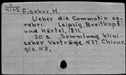 Fischer, H.
Ueber die Commotio ce-
rebri. Leipzig, Breitkopf
und Härtel, 1871.
20 s. (Sammlung klini-
scher Vorträge N27. Chirur-
gie N8.